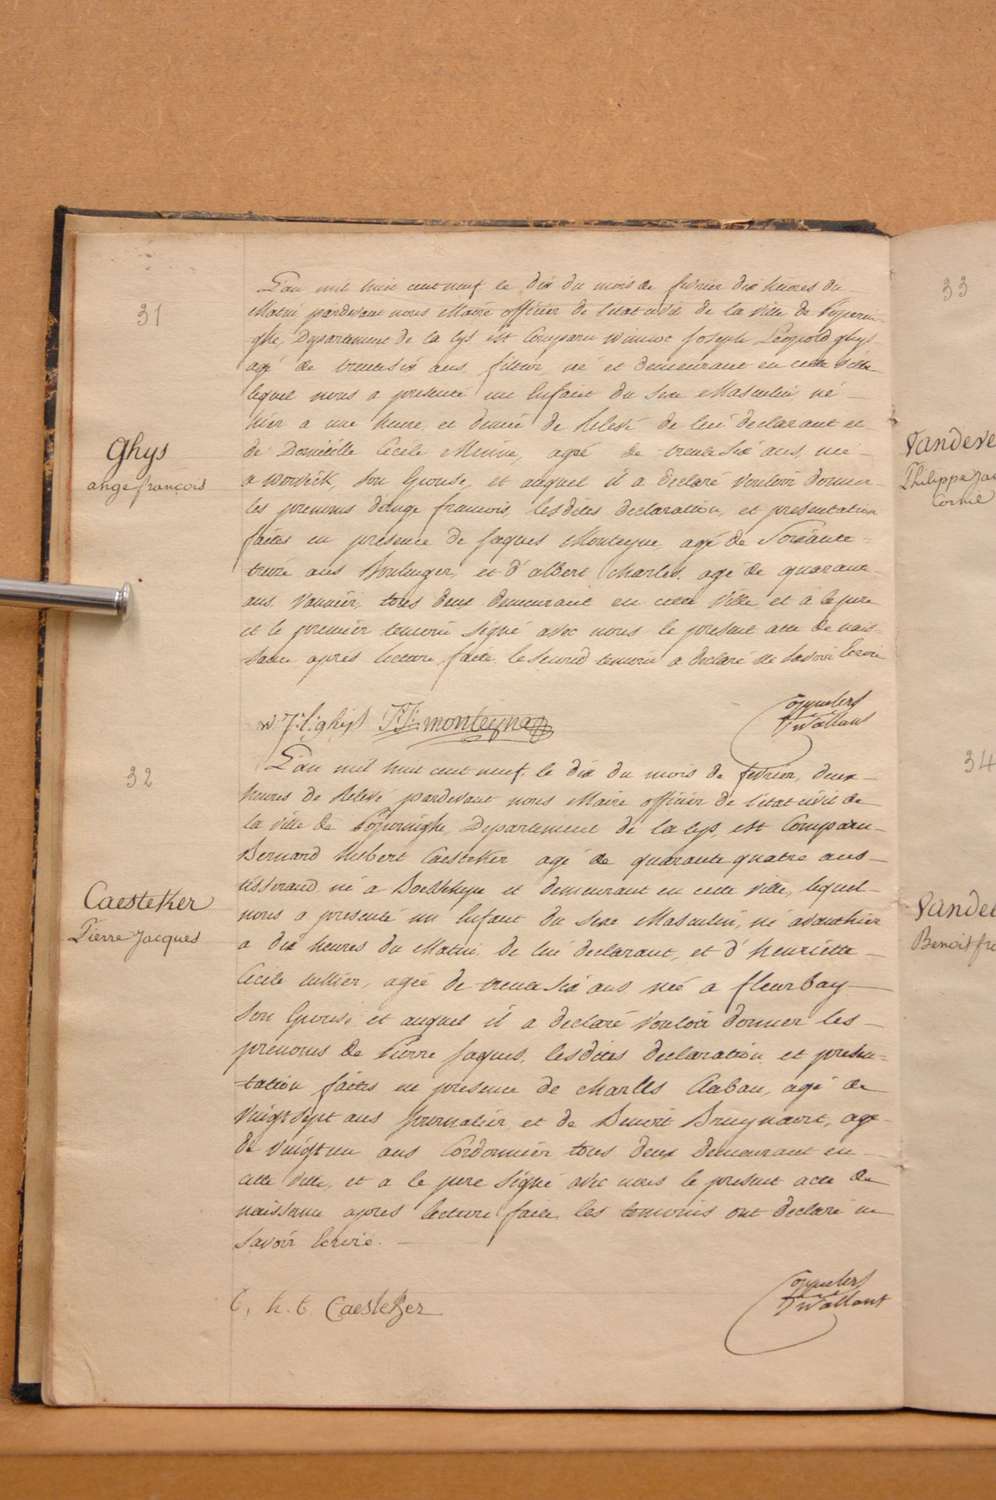 31
Ghys
ange françois
L'an mil huit cent neuf le dix du mois de fevrier dix heures du
Matin pardevant nous Maire officier de l'etat civil de la ville de Poperin-
ghe, Departement de la Lys est Comparu winnoc Joseph Léopold ghys
agé de trente six ans, filtier, né et demeurant en cette ville
lequel nous a presenté un Enfant du sexe Masculin né
hier a une heure et demie de Relevé de lui declarant et
de Demoiselle Cécile Menne, agée de trente six ans, née
a Worvick, son Epouse, et auquel il a declaré vouloir donner
les prenoms d'ange francois, lesdites declaration, et presentation
faites en presence de Jaques Monteyne agé de Soixante
treize ans Boulanger, et d'albert Charles, agé de quarante
ans Vannier, tous deux demeurant en cette Ville et a le pere
et le premier temoin signé avec nous le present acte de nais-
sance apres lecture faite le second temoin a declaré ne savoir Ecrire
w J: L: ghijs J: J: monteyne
vwallant
32
Caesteker
Pierre Jacques
L'an mil huit cent neuf, le dix du mois de fevrier, deux
heures de Relevé pardevant nous Maire officier de l'etat civil de
la ville de Poperinghe, Departement de la lys, est Comparu
Bernard hubert Caesteker agé de quarante quatre ans
tisserand né a Boesehepe et demeurant en cette ville, lequel
nous a presenté un Enfant du sexe Masculin, né avanthier
a dix heures du Matin, de lui declarant, et d'henriette
Cecile Cullier, agée de trente six ans née a fleurbay
son Epouse, et auquel il a declaré vouloir donner les
prenoms de Pierre Jaques, lesdites declaration et presen-
tation faites en presence de Charles Caban, agé de
vingt sept ans Journalier, et de Benoit Bruynaert, agé
de vingt un ans Cordonnier tous deux demeurant en
cette ville, et a le pere signé avec nous le present acte de
naissance apres lecture faite les temoins ont declaré ne
savoir Ecrire.
Caesteker
vwallant
33
34